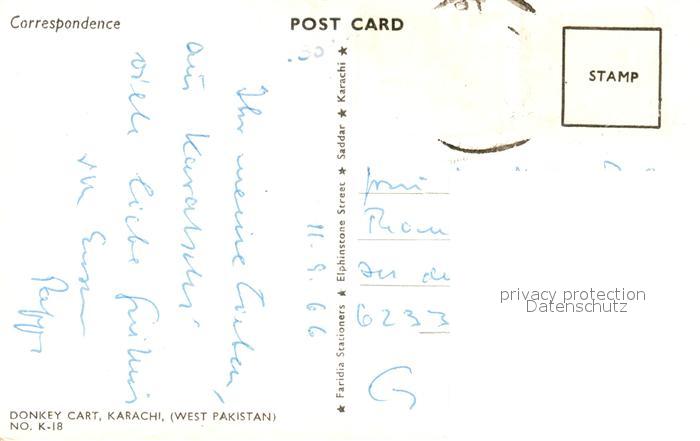 Correspondence
POST CARD
STAMP
11.9.66
Ihr meine Lieben,
aus Karatschi
viele liebe Grüsse
von Eurem
★ Faridia Stationers ★ Elphinstone Street ★ Saddar ★ Karachi ★
6233
G
privacy protection
Datenschutz
DONKEY CART, KARACHI, (WEST PAKISTAN)
NO. K-18